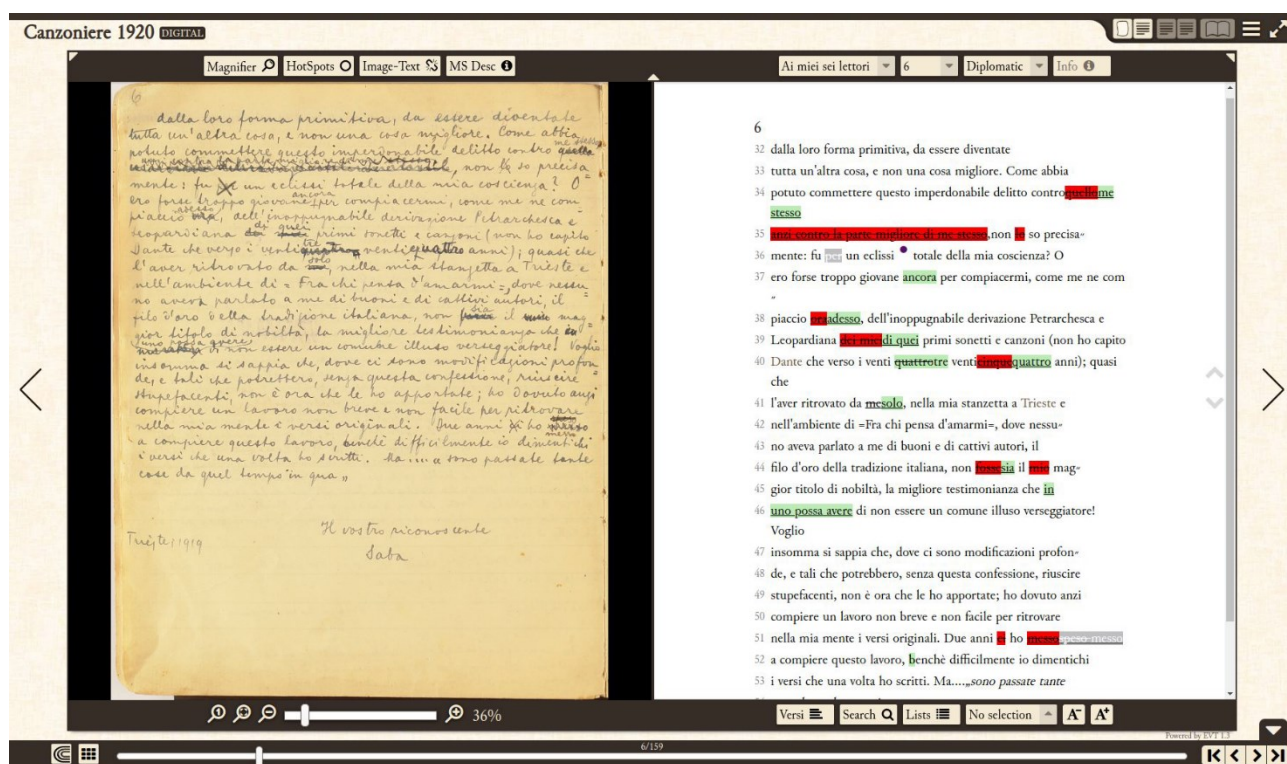 Canzoniere 1920 DIGITAL
Magnifier HotSpots Image-Text MS Desc
6
dalla loro forma primitiva, da essere diventate
tutta un'altra cosa, e non una cosa migliore. Come abbia
me stesso
potuto commettere questo imperdonabile delitto contro quello
anzi contro la parte migliore di me stesso, non lo so precisa=
mente: fu un eclissi totale della mia coscienza? O
ancora
ero forse troppo giovane per compiacermi, come me ne com
adesso
piaccio ora, dell'inoppugnabile derivazione Petrarchesca e
di quei
Leopardiana dei miei primi sonetti e canzoni (non ho capito
tre
Dante che verso i venti quattro ventiquattro anni); quasi che
solo
l'aver ritrovato da me, nella mia stanzetta a Trieste e
nell'ambiente di = Fra chi pensa d'amarmi =, dove nessu
no aveva parlato a me di buoni e di cattivi autori, il
sia
filo d'oro della tradizione italiana, non fosse il mio mag=
gior titolo di nobiltà, la migliore testimonianza che in
uno possa avere
di non essere un comune illuso verseggiatore! Voglio
insomma si sappia che, dove ci sono modificazioni profon
de, e tali che potrebbero, senza questa confessione, riuscire
stupefacenti, non è ora che le ho apportate; ho dovuto anzi
compiere un lavoro non breve e non facile per ritrovare
nella mia mente i versi originali. Due anni ci ho messo
messo
a compiere questo lavoro, benchè difficilmente io dimentichi
i versi che una volta ho scritti. Ma....„ sono passate tante
cose da quel tempo in qua„
Il vostro riconoscente
Trieste, 1919
Saba
36%
Ai miei sei lettori 6 Diplomatic Info
6
32 dalla loro forma primitiva, da essere diventate
33 tutta un'altra cosa, e non una cosa migliore. Come abbia
34 potuto commettere questo imperdonabile delitto controquellome
stesso
35 anzi contro la parte migliore di me stesso,non lo so precisa=
36 mente: fu per un eclissi totale della mia coscienza? O
37 ero forse troppo giovane ancora per compiacermi, come me ne com
=
38 piaccio oraadesso, dell'inoppugnabile derivazione Petrarchesca e
39 Leopardiana dei mieidi quei primi sonetti e canzoni (non ho capito
40 Dante che verso i venti quattrotre venticinquequattro anni); quasi
che
41 l'aver ritrovato da mesolo, nella mia stanzetta a Trieste e
42 nell'ambiente di =Fra chi pensa d'amarmi=, dove nessu=
43 no aveva parlato a me di buoni e di cattivi autori, il
44 filo d'oro della tradizione italiana, non fossesia il mio mag=
45 gior titolo di nobiltà, la migliore testimonianza che in
46 uno possa avere di non essere un comune illuso verseggiatore!
Voglio
47 insomma si sappia che, dove ci sono modificazioni profon=
48 de, e tali che potrebbero, senza questa confessione, riuscire
49 stupefacenti, non è ora che le ho apportate; ho dovuto anzi
50 compiere un lavoro non breve e non facile per ritrovare
51 nella mia mente i versi originali. Due anni ci ho messospeso messo
52 a compiere questo lavoro, benchè difficilmente io dimentichi
53 i versi che una volta ho scritti. Ma....„sono passate tante
Versi Search Lists No selection A- A+
Powered by EVT 1.3
6/159